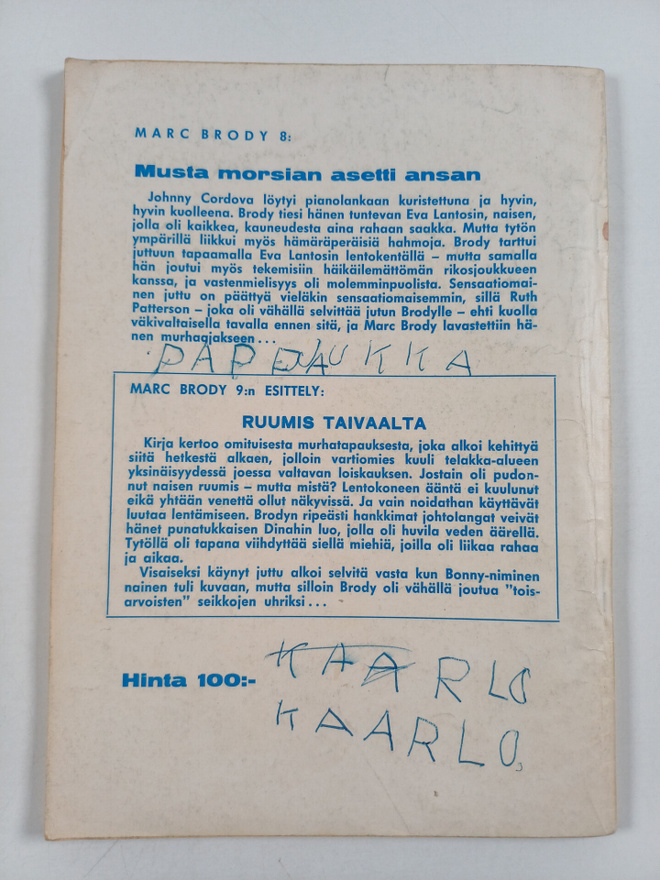 MARC BRODY 8:
Musta morsian asetti ansan
Johnny Cordova löytyi pianolankaan kuristettuna ja hyvin,
hyvin kuolleena. Brody tiesi hänen tuntevan Eva Lantosin, naisen,
jolla oli kaikkea, kauneudesta aina rahaan saakka. Mutta tytön
ympärillä liikkui myös hämäräperäisiä hahmoja. Brody tarttui
juttuun tapaamalla Eva Lantosin lentokentällä – mutta samalla
hän joutui myös tekemisiin häikäilemättömän rikosjoukkueen
kanssa, ja vastenmielisyys oli molemminpuolista. Sensaatiomai-
nen juttu on päättyä vieläkin sensaatiomaisemmin, sillä Ruth
Patterson – joka oli vähällä selvittää jutun Brodylle – ehti kuolla
väkivaltaisella tavalla ennen sitä, ja Marc Brody lavastettiin hä-
nen murhaajakseen...
MARC BRODY 9:n ESITTELY:
RUUMIS TAIVAALTA
Kirja kertoo omituisesta murhatapauksesta, joka alkoi kehittyä
siitä hetkestä alkaen, jolloin vartiomies kuuli telakka-alueen
yksinäisyydessä joessa valtavan loiskauksen. Jostain oli pudon-
nut naisen ruumis – mutta mistä? Lentokoneen ääntä ei kuulunut
eikä yhtään venettä ollut näkyvissä. Ja vain noidathan käyttävät
luutaa lentämiseen. Brodyn ripeästi hankkimat johtolangat veivät
hänet punatukkaisen Dinahin luo, jolla oli huvila veden äärellä.
Tytöllä oli tapana viihdyttää siellä miehiä, joilla oli liikaa rahaa
ja aikaa.
Visaiseksi käynyt juttu alkoi selvitä vasta kun Bonny-niminen
nainen tuli kuvaan, mutta silloin Brody oli vähällä joutua "tois-
arvoisten" seikkojen uhriksi...
KAARLO
Hinta 100:-
KAARLO